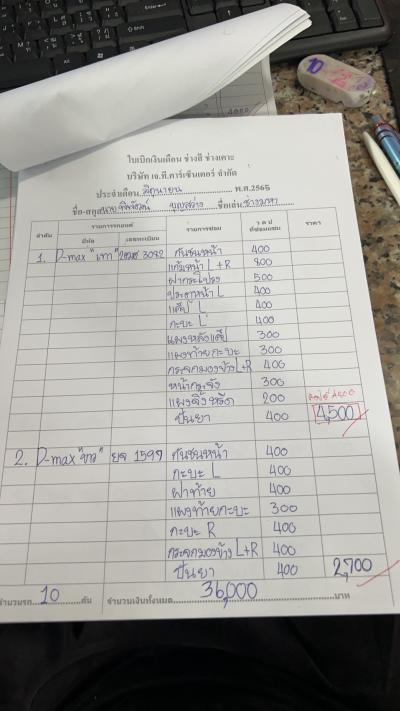 ใบเบิกเงินเดือน ช่างสี ช่างเคาะ
บริษัท เจ.ที.คาร์เซ็นเตอร์ จำกัด
ประจำเดือน มิถุนายน พ.ศ.2565
ชื่อ-สกุล บุญสว่าง ชื่อเล่น ช่างมหา
ลำดับ รายการรถยนต์ รายการซ่อม ว ด ป ที่ซ่อมเสร็จ ราคา
ยี่ห้อ เลขทะเบียน
1. D-max "เทา" 3092 กันชนหน้า 400
แก้มหน้า L+R 800
ฝากระโปรง 500
ประตูหน้า L 400
แค๊ป L 400
กะบะ L 400
แผงหลังแค๊ป 300
แผงท้ายกะบะ 300
กระจกมองข้าง L+R 400
หน้ากระจัง 300
200
ปั่นยา 400 4,500
2. D-max "ขาว" ยจ 1597 กันชนหน้า 400
กะบะ L 400
ฝาท้าย 400
แผงท้ายกะบะ 300
กะบะ R 400
กระจกมองข้าง L+R 400
ปั่นยา 400 2,700
จำนวนรถ 10 คัน จำนวนเงินทั้งหมด 36,000 บาท